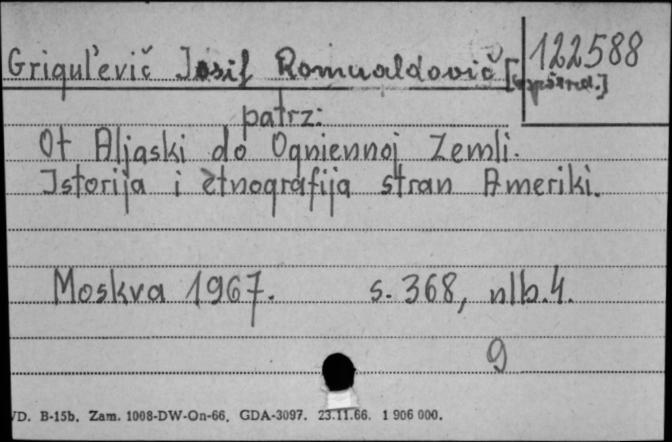 122588
Grigul'evič Josif Romualdovič [współred.]
patrz:
Ot Aljaski do Ogniennoj Zemli.
Istorija i ètnografija stran Ameriki.
Moskva 1967. s. 368, nlb. 4.
9
D. B-15b. Zam. 1008-DW-On-66. GDA-3097. 23.11.66. 1 906 000.